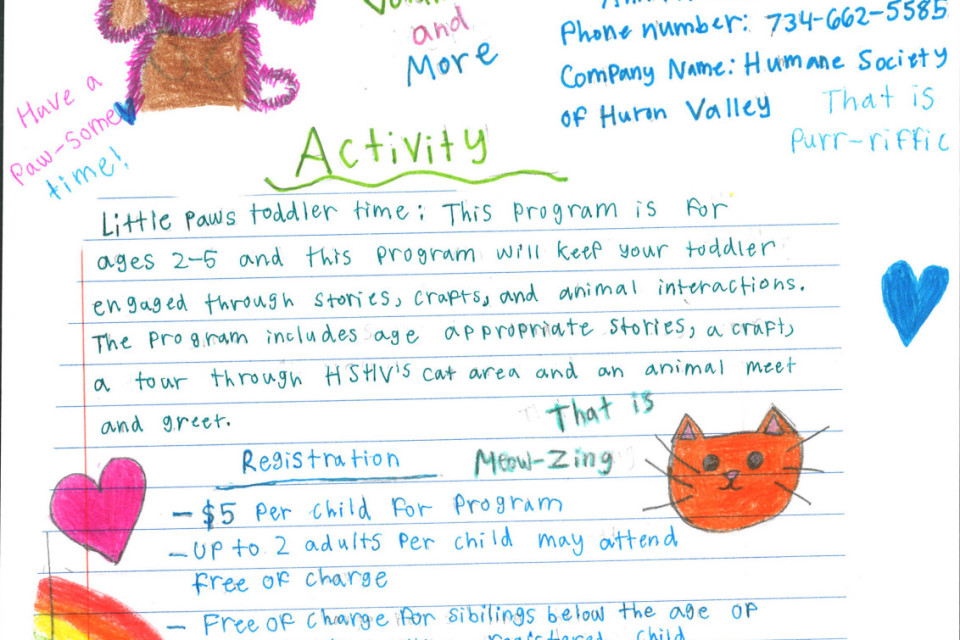 and
More
Phone number: 734-662-5585
Company Name: Humane Society
of Huron Valley
That is
Purr-riffic
Have a
Paw-some
time!
Activity
Little Paws toddler time: This Program is for
ages 2-5 and this program will keep your toddler
engaged through stories, crafts, and animal interactions.
The program includes age appropriate stories, a craft,
a tour through HSHV's cat area and an animal meet
and greet.
That is
Meow-zing
Registration
- $5 Per child for Program
- UP to 2 adults Per child may attend
free of charge
- Free of charge for sibilings below the age of
registered child